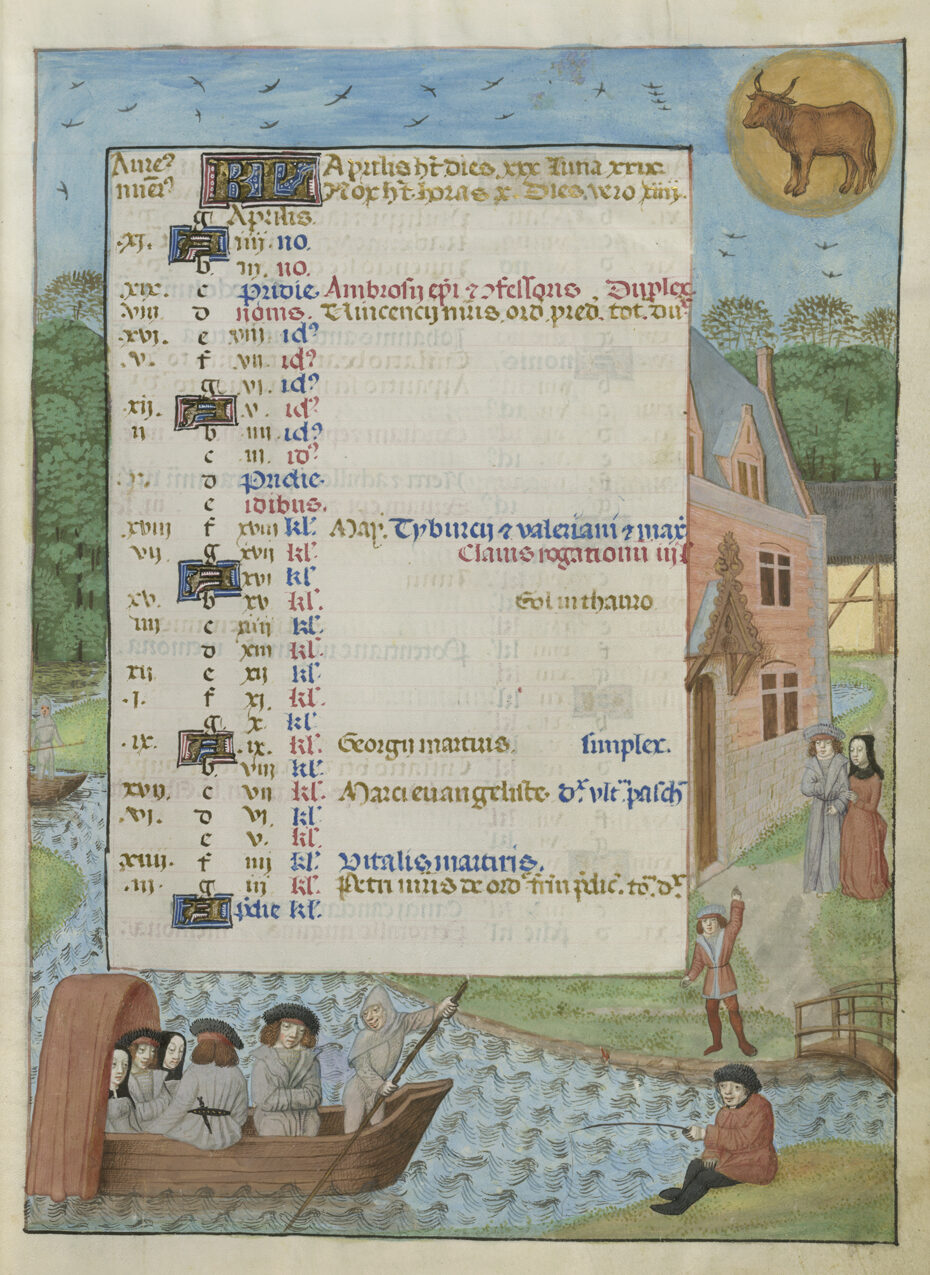 Aure⁹ KL Aprilis ht dies xxx luna xxix.
nue⁹ Nox ht horas x. Dies vero xiiii.
g Aprilis.
.xi. A iiii no.
b iii. no.
.xix. c pridie Ambrosii epi ⁊ ɔfessoris Duplex
viii d nonis. Vincencii mris. ord pred. tot. du
.xvi. e viii id⁹
.v. f vii id⁹
g vi. id⁹
.xii. A .v. id⁹
ii b iiii id⁹
c iii. id⁹
d Pridie.
e idibus.
xviii f xviii kl. May. Tyburcii ⁊ valeriani ⁊ max
vii g xvii kl. Clavis rogationum
A xvi kl
xv. b xv kl. Sol in thauro
iiii c xiiii kl.
d xiii kl.
xii. e xii kl
.i. f xi. kl.
g x. kl
.ix. A .ix. kl. Georgii martiris. simplex.
b viii kl.
xvii. c vii kl. Marci euangeliste. d. vlt. pasch
.vi. d vi. kl
e v. kl.
xiiii. f iiii kl Vitalis martiris.
.iii. g iii kl. Petri mris de ord frm pdic. to. d.
A pdie kl.